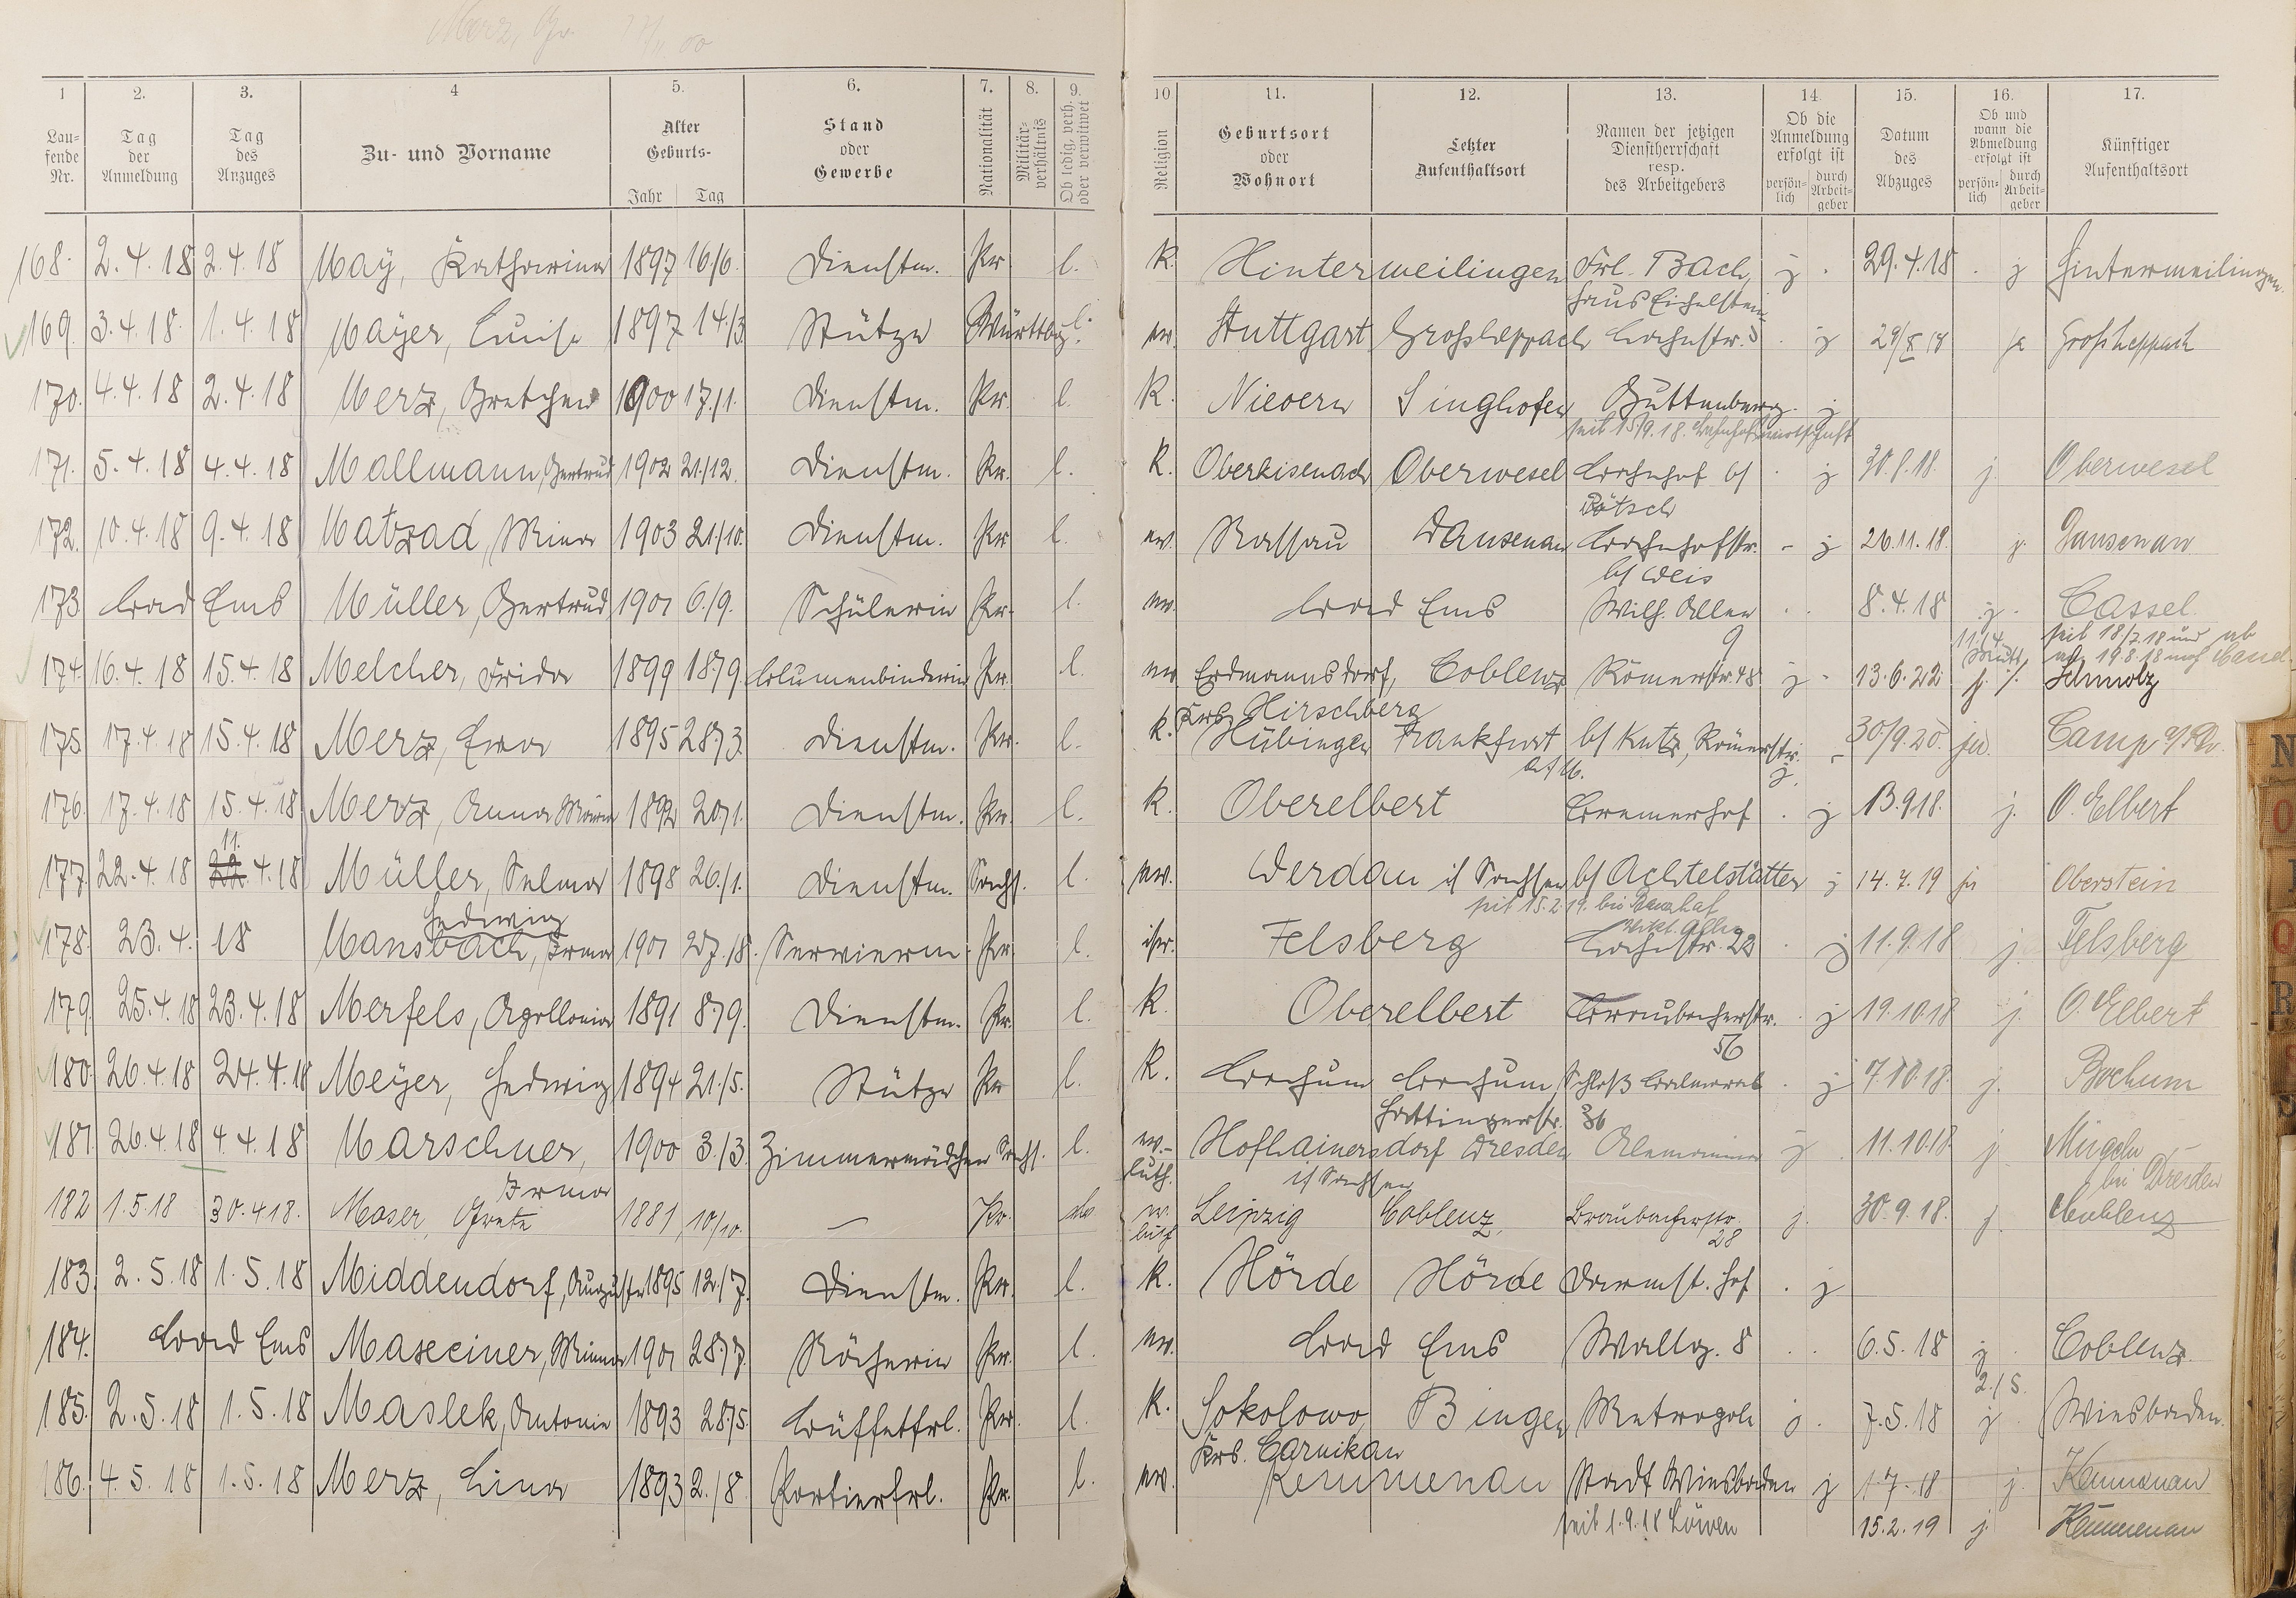 Merz, Gr. 17/11 00
1 2. 3. 4 5. 6. 7. 8. 9. 10 11. 12. 13. 14. 15. 16. 17.
Laufende Nr. Tag der Anmeldung Tag des Anzuges Zu- und Vorname Alter Geburts- Jahr Tag Stand oder Gewerbe Nationalität Militärverhältnis Ob ledig, verh. oder verwitwet Religion Geburtsort oder Wohnort Letzter Aufenthaltsort Namen der jetzigen Dienstherrschaft resp. des Arbeitgebers Ob die Anmeldung erfolgt ist persönlich durch Arbeitgeber Datum des Abzuges Ob und wann die Abmeldung erfolgt ist persönlich durch Arbeitgeber Künftiger Aufenthaltsort
168. 2.4.18 2.4.18 Maÿ, Katharina 1897 16/6. Dienstm. Pr l. K. Hinterweilingen Frl. Bach, j. 29.4.18 . j Hinterweilingen.
Haus Eichelstein
169. 3.4.18. 1.4.18 Maÿer, Luise 1897 14./3 Stütze Württbg. l. ev. Stuttgart Großheppach Bahnstr. 3 . j 29/8 18 ja Großheppach
170. 4.4.18 2.4.18 Merz, Gretchen 1900 17./1. Dienstm. Pr. l. K. Nievern Singhofen Guttenberg. j
seit 15/9.18. Bahnhofswirtschaft
171. 5.4.18 4.4.18 Mallmann, Gertrud 1902 21./12. Dienstm. Pr. l. K. Oberkisenach Oberwesel Bahnhof bf . j 30.8.18. j. Oberwesel
Pötsch
172. 10.4.18 9.4.18 Matzad, Mina 1903 21./10. Dienstm. Pr l. ev. Nassau Dausenau Bahnhofstr. - j 26.11.18. j. Dausenau
bf Weis
173. Bad Ems Müller, Gertrud 1901 6./9. Schülerin Pr. l. ev. Bad Ems Wilh. Allee . . 8.4.18 j. Cassel.
9 11./4. seit 18/7.18 und ab
174. 16.4.18 15.4.18 Melcher, Frida 1899 18./9. Blumenbinderin Pr. l. ev Erdmannsdorf, Coblenz Römerstr. 48 j - 13.6.22 19.8.18 nach Cassel
Krs. Hirschberg
175. 17.4.18 15.4.18 Merz, Eva 1895 28./3. Dienstm. Pr. l. K. Hübingen Frankfurt bf Kutz, Römerstr. j. - 30/9.20. ja. Camp a/Rh.
a/M.
176. 17.4.18 15.4.18 Merz, Anna Maria 1892 20./1. Dienstm. Pr. l. K. Oberelbert Bremerhof . j 13.9.18. j. O.Elbert
11.
177. 22.4.18 22.4.18 Müller, Selma 1898 26./1. Dienstm. Sachs. l. ev. Werdau i/ Sachsen bf Achtelstätter j 14.7.19 ja Oberstein
Hedwig
178. 23.4.18 Mansbach, Irma 1901 27./8. Servierm. Pr. l. isr. Felsberg Bahnstr. 22 . j 11.9.18 j. Felsberg
179. 25.4.18 23.4.18 Merfels, Apollonia 1891 8./9. Dienstm. Pr. l. K. Oberelbert Braubacherstr. . j 19.10.18 j. O.Elbert
56
180. 26.4.18 24.4.18 Meÿer, Hedwig 1894 21./5. Stütze Pr l. K. Bochum Bochum, Schloß Balmoral . j 7.10.18. j. Bochum
Hattingerstr. 36
181. 26.4.18 4.4.18 Marschner, 1900 3./3. Zimmermädchen Sachs. l. ev.- luth. Hofhainersdorf Dresden Alemannia j . 11.10.18. j Mügeln
Irma i/ Sachsen bei Dresden
182 1.5.18 30.4.18. Moser, Grete 1881 10/10. — Pr. ev. luth Leipzig Coblenz, Braubacherstr. j. 30.9.18. j. Coblenz
28
183. 2.5.18 1.5.18 Middendorf, Auguste 1895 12./7. Dienstm. Pr. l. K. Hörde Hörde Darmst. Hof . j
184. Bad Ems Maseciner, Minna 1901 28./7. Köchin Pr. l. ev. Bad Ems Wallg. 8 . . 6.5.18 j . Coblenz.
2./5.
185. 2.5.18 1.5.18 Maslek, Antonie 1893 28./5. Büffetfrl. Pr. l. K. Sokolowo Bingen Metropole j . 7.5.18 j . Wiesbaden.
Krs. Carnikau
186. 4.5.18 1.5.18 Merz, Lina 1893 2./8. Portierfrl. Pr. l. ev. Kemmenau Stadt Wiesbaden j 1.7.18 j. Kemmenau
seit 1.9.18 Löwen 15.2.19 j. Kemmenau